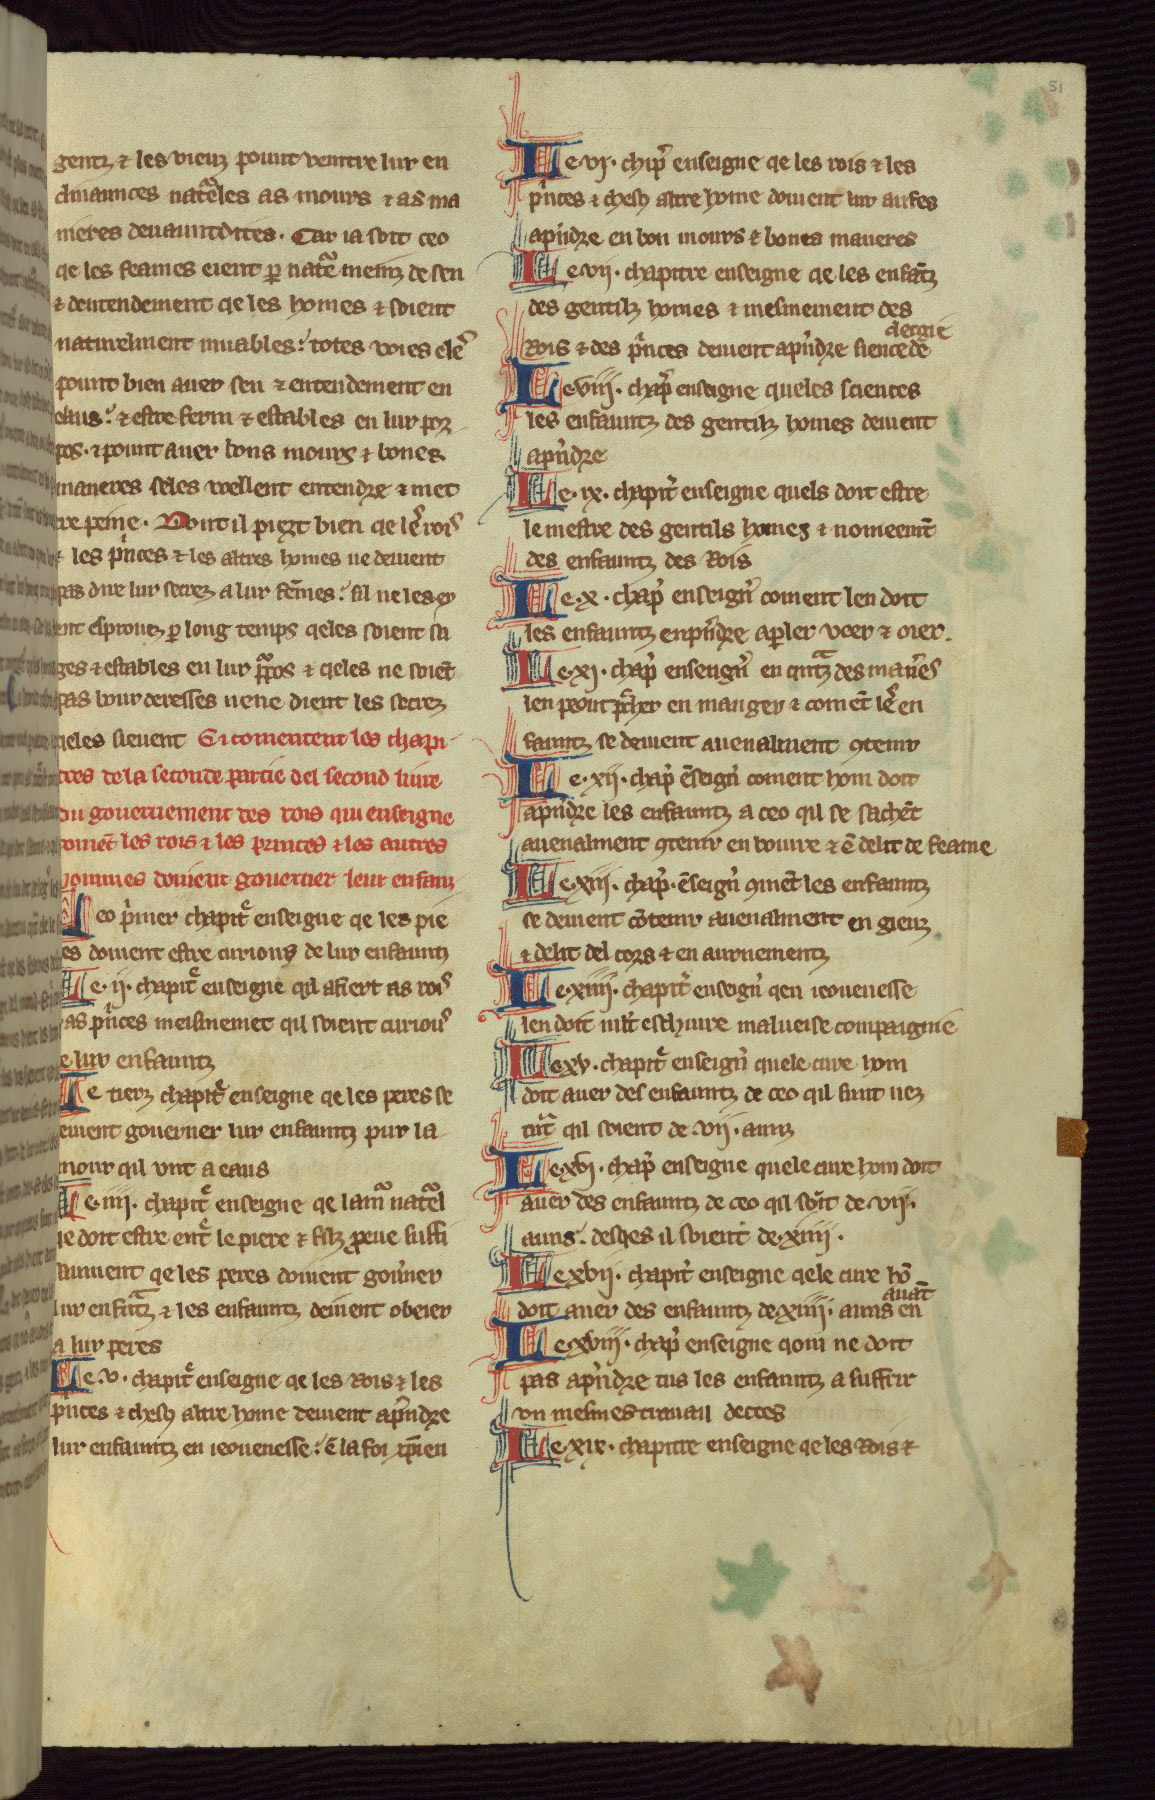 51
gentz & les vieuz pount ventre lur en
clinaunces nat̾eles as mours & as ma
nieres deuauntdites. Car ia soit ceo
qe les feames eient p̱ nat̾e meinz de sen
& dentendement qe les homes & soient
naturelment muables: totes voies ele᷒
pount bien auer sen & entendement en
elaus: & estre ferm & estables en lur por
pos. & pount auer bons mours & bones
maneres seles voellent entendre & met
tre peine. Dont il piert bien qe le᷒ rois
& les p̾nces & les altres homes ne deiuent
pas dire lur secrez a lur fēmes: sil ne les ey
ent esprouez p̱ long temps qeles soient sa
ges & estables en lur ꝓpos & qeles ne soiēt
pas bour deresses ne ne dient les secrez
qeles sieuent Ci comencent les chapi
tres de la seconde partie del second liure
du gouernement des rois qui enseigne
coment les rois & les princes & les autres
hommes doiuent gouerner leur enfanz
Leo p̾mer chapit̾ enseigne qe les pie
res doiuent estre curious de lur enfauntz
Le .ii. chapit̾ enseigne qil afiert as rois
& as p̾nces meismemēt qil soient curious
de lur enfauntz
Le tierz chapit̾ enseigne qe les peres se
deiuent gouerner lur enfauntz pur la
mour qil vnt a eaus
Le .iiii. chapit̾ enseigne qe lam̾ nat̾el
qe doit estre ent̾ le piere & filz proue suffi
saument qe les peres doiuent gou̾ner
lur enfātz & les enfauntz deiuent obeier
a lur peres
Le .v. chapit̾ enseigne qe les Rois & les
p̾nces & chesc̄ altre home deiuent ap̾ndre
lur enfauntz en ieouenesse: ē la foi xp̄ien
Le .vi. chap̾ enseigne qe les rois & les
p̾nces & chesc̄ altre home doiuent lur anfes
ap̾ndre en bon mours & bones maneres
Le vii. chapitre enseigne qe les enfātz
des gentilz homes & mesmement des
Rois & des p̾nces deiuent ap̾ndre sience de
clergie
Le viii. chap̾ enseigne queles sciences
les enfauntz des gentilz homes deiuent
ap̾ndre
Le .ix. chapit̾ enseigne quels doit estre
le mestre des gentils homes & nomeemt̄
des enfauntz des Rois
Le .x. chap̾ enseign̾ coment len doit
les enfauntz enp̾ndre a p̱ler veer & oier.
Le .xi. chap̾ enseign̾ en qntz des man̾es
len peout pecher en manger & comēt le᷒ en
fauntz se deiuent auenalment ꝯtenir
Le .xii. chap̾ ēseign̾ coment hom doit
ap̾ndre les enfauntz a ceo qil se sachēt
auenalment ꝯtenir en boiure & ē delit de feame
Le .xiii. chap̾. ēseign̾ ꝯmēt les enfauntz
se deiuent cōtenir auenalment en gieuz
& delit del cors & en aurnementz
Le .xiiii. chapit̾ enseign̾ qen ieouenesse
len doit mlt̄ eschiure malueise compaignie
Le xv. chapit̾ enseign̾ quele cure hom
doit auer des enfauntz de ceo qil sunt nez
tāt qil soient de .vii. aunz
Le xvi. chap̾ enseigne quele cure hom doit
auer des enfauntz de ceo qil sōit de vii.
auns. desqes il soient de .xiiii.
Le xvii. chapit̾ enseigne qele cure hō
doit auer des enfauntz de xiiii. auns en
auāt
Le .xviii. chap̾ enseigne qom ne doit
pas ap̾ndre tus les enfauntz a suffrir
vn mesmes trauail dectes
Le .xix. chapitre enseigne qe les Rois &